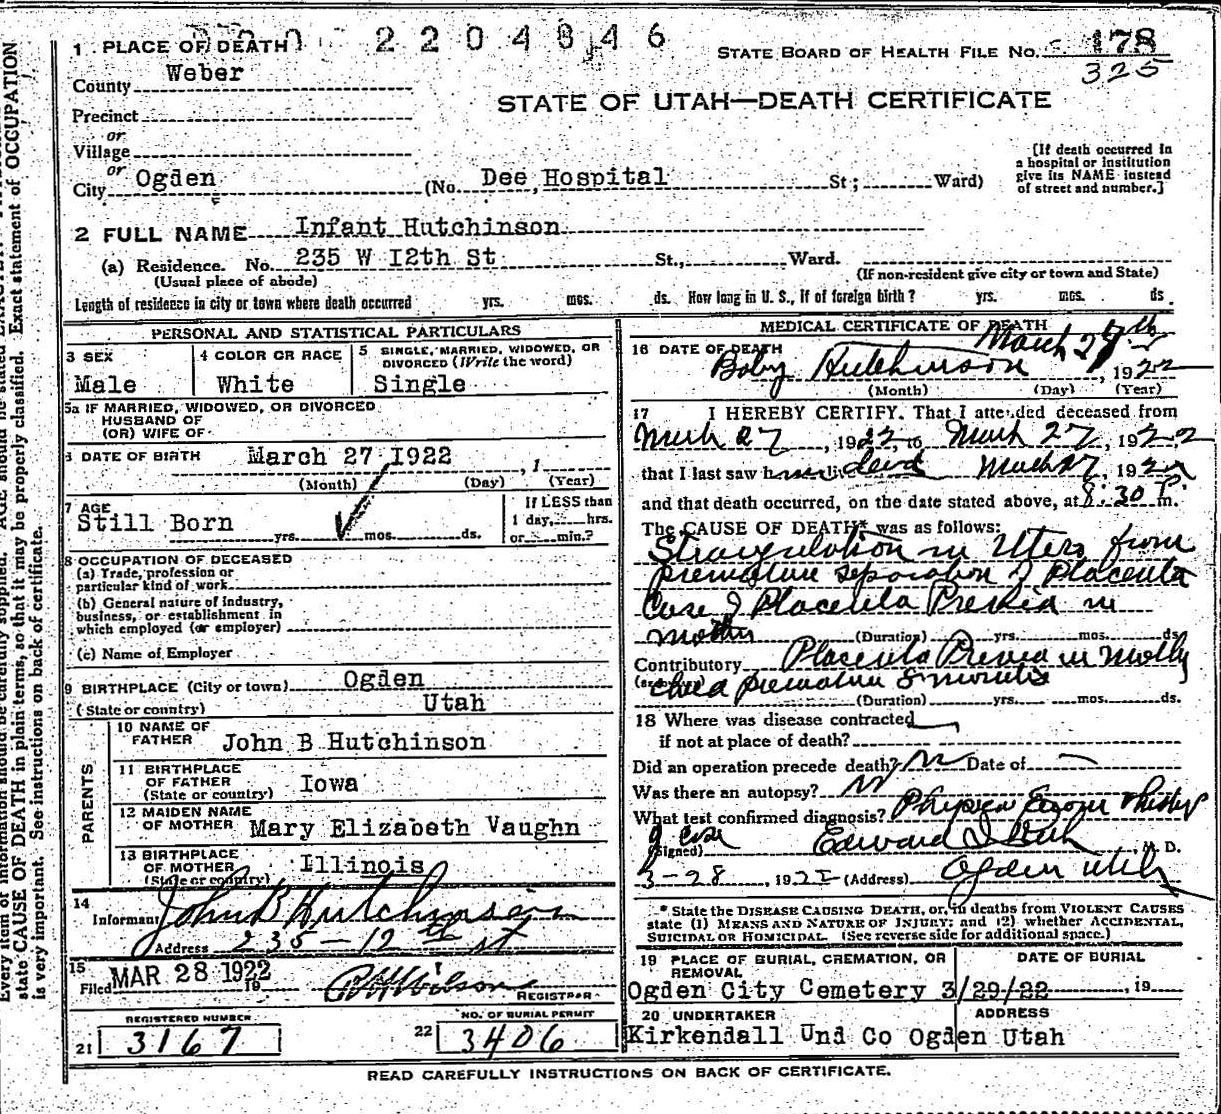 2204846
STATE BOARD OF HEALTH FILE No. 178
325
1 PLACE OF DEATH
County Weber
STATE OF UTAH—DEATH CERTIFICATE
Precinct
or
Village
or
City Ogden (No. Dee Hospital St; Ward)
[If death occurred in
a hospital or institution
give its NAME instead
of street and number.]
2 FULL NAME Infant Hutchinson
(a) Residence. No. 235 W I2th St St., Ward.
(Usual place of abode) (If non-resident give city or town and State)
Length of residence in city or town where death occurred yrs. mos. ds. How long in U. S., if of foreign birth? yrs. mos. ds
PERSONAL AND STATISTICAL PARTICULARS
3 SEX
Male
4 COLOR OR RACE
White
5 SINGLE, MARRIED, WIDOWED, OR
DIVORCED (Write the word)
Single
5a IF MARRIED, WIDOWED, OR DIVORCED
HUSBAND OF
(OR) WIFE OF
6 DATE OF BIRTH March 27 I922 , 1
(Month) (Day) (Year)
7 AGE
Still Born
yrs. mos. ds.
If LESS than
1 day, hrs.
or min.?
8 OCCUPATION OF DECEASED
(a) Trade, profession or
particular kind of work
(b) General nature of industry,
business, or establishment in
which employed (or employer)
(c) Name of Employer
9 BIRTHPLACE (City or town) Ogden
(State or country) Utah
PARENTS
10 NAME OF
FATHER John B Hutchinson
11 BIRTHPLACE
OF FATHER
(State or country) Iowa
12 MAIDEN NAME
OF MOTHER Mary Elizabeth Vaughn
13 BIRTHPLACE
OF MOTHER
(State or country) Illinois
14
Informant John B Hutchinson
Address 235-12th st
15
Filed MAR 28 1922 19 Wilson
REGISTRAR
REGISTERED NUMBER
21 3167
NO. OF BURIAL PERMIT
22 3406
MEDICAL CERTIFICATE OF DEATH
16 DATE OF DEATH March 27th
Baby Hutchinson , 1922
(Month) (Day) (Year)
17 I HEREBY CERTIFY. That I attended deceased from
March 27, 1922, to March 27, 1922
that I last saw h alive dead March 27 1922
and that death occurred, on the date stated above, at 8:30 P. m.
The CAUSE OF DEATH* was as follows:
Strangulation in Utero from
premature separation of Placenta
Case of Placenta Previa in
mother (Duration) yrs. mos. ds
Contributory Placenta Previa in
child premature 8 months
(Duration) yrs. mos. ds.
18 Where was disease contracted
if not at place of death?
Did an operation precede death? Date of
Was there an autopsy?
What test confirmed diagnosis?
of case
(Signed) Edward M. D.
3-28, 1922 (Address) Ogden Utah
* State the DISEASE CAUSING DEATH, or, in deaths from VIOLENT CAUSES
state (1) MEANS AND NATURE OF INJURY; and (2) whether ACCIDENTAL,
SUICIDAL OR HOMICIDAL. (See reverse side for additional space.)
19 PLACE OF BURIAL, CREMATION, OR
REMOVAL
Ogden City Cemetery
DATE OF BURIAL
3/29/22 , 19
20 UNDERTAKER
Kirkendall Und Co
ADDRESS
Ogden Utah
READ CAREFULLY INSTRUCTIONS ON BACK OF CERTIFICATE.
state CAUSE OF DEATH in plain terms, so that it may be properly classified. Exact statement of OCCUPATION
is very important. See instructions on back of certificate.